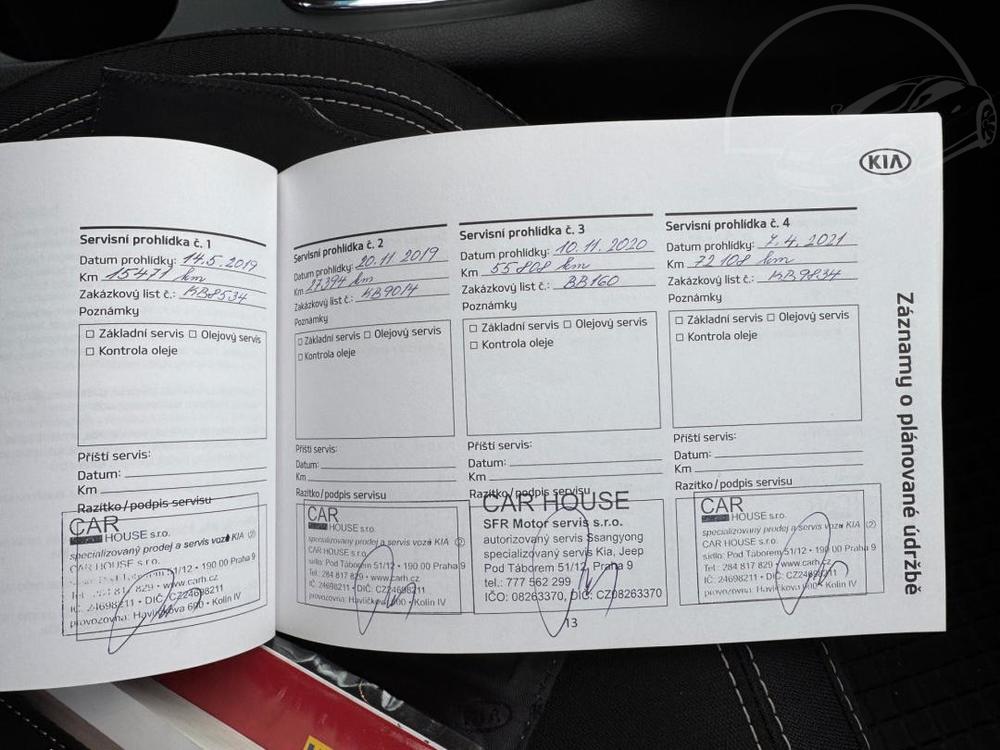 KIA
Servisní prohlídka č. 1
Datum prohlídky: 14.5.2019
Km 15471 km
Zakázkový list č.: KB8534
Poznámky
Základní servis Olejový servis
Kontrola oleje
Příští servis:
Datum:
Km
Razítko/podpis servisu
CAR
HOUSE s.r.o.
specializovaný prodej a servis vozů KIA (2)
CAR HOUSE s.r.o.
51/12 • 190 00 Praha 9
829 • www.carh.cz
IČ: 24698211 • DIČ: CZ24698211
provozovna: Havlíčkova 600 • Kolín IV
Servisní prohlídka č. 2
Datum prohlídky: 20.11.2019
Km 27394 km
Zakázkový list č.: KB9014
Poznámky
Základní servis Olejový servis
Kontrola oleje
Příští servis:
Datum:
Km
Razítko/podpis servisu
CAR
HOUSE s.r.o.
specializovaný prodej a servis vozů KIA (2)
CAR HOUSE s.r.o.
sídlo: Pod Táborem 51/12 • 190 00 Praha 9
Tel.: 284 817 829 • www.carh.cz
IČ: 24698211 • DIČ: CZ24698211
provozovna: Havlíčkova 600 • Kolín IV
Servisní prohlídka č. 3
Datum prohlídky: 10.11.2020
Km 55808 km
Zakázkový list č.: BB160
Poznámky
Základní servis Olejový servis
Kontrola oleje
Příští servis:
Datum:
Km
Razítko/podpis servisu
CAR HOUSE
SFR Motor servis s.r.o.
autorizovaný servis Ssangyong
specializovaný servis Kia, Jeep
Pod Táborem 51/12, Praha 9
tel.: 777 562 299
IČO: 08263370, DIČ: CZ08263370
Servisní prohlídka č. 4
Datum prohlídky: 7.4.2021
Km 72108 km
Zakázkový list č.: KB9834
Poznámky
Základní servis Olejový servis
Kontrola oleje
Příští servis:
Datum:
Km
Razítko/podpis servisu
CAR
HOUSE s.r.o.
specializovaný prodej a servis vozů KIA (2)
CAR HOUSE s.r.o.
sídlo: Pod Táborem 51/12 • 190 00 Praha 9
Tel.: 284 817 829 • www.carh.cz
IČ: 24698211 • DIČ: CZ24698211
provozovna: Havlíčkova 600 • Kolín IV
Záznamy o plánované údržbě
13
KIA